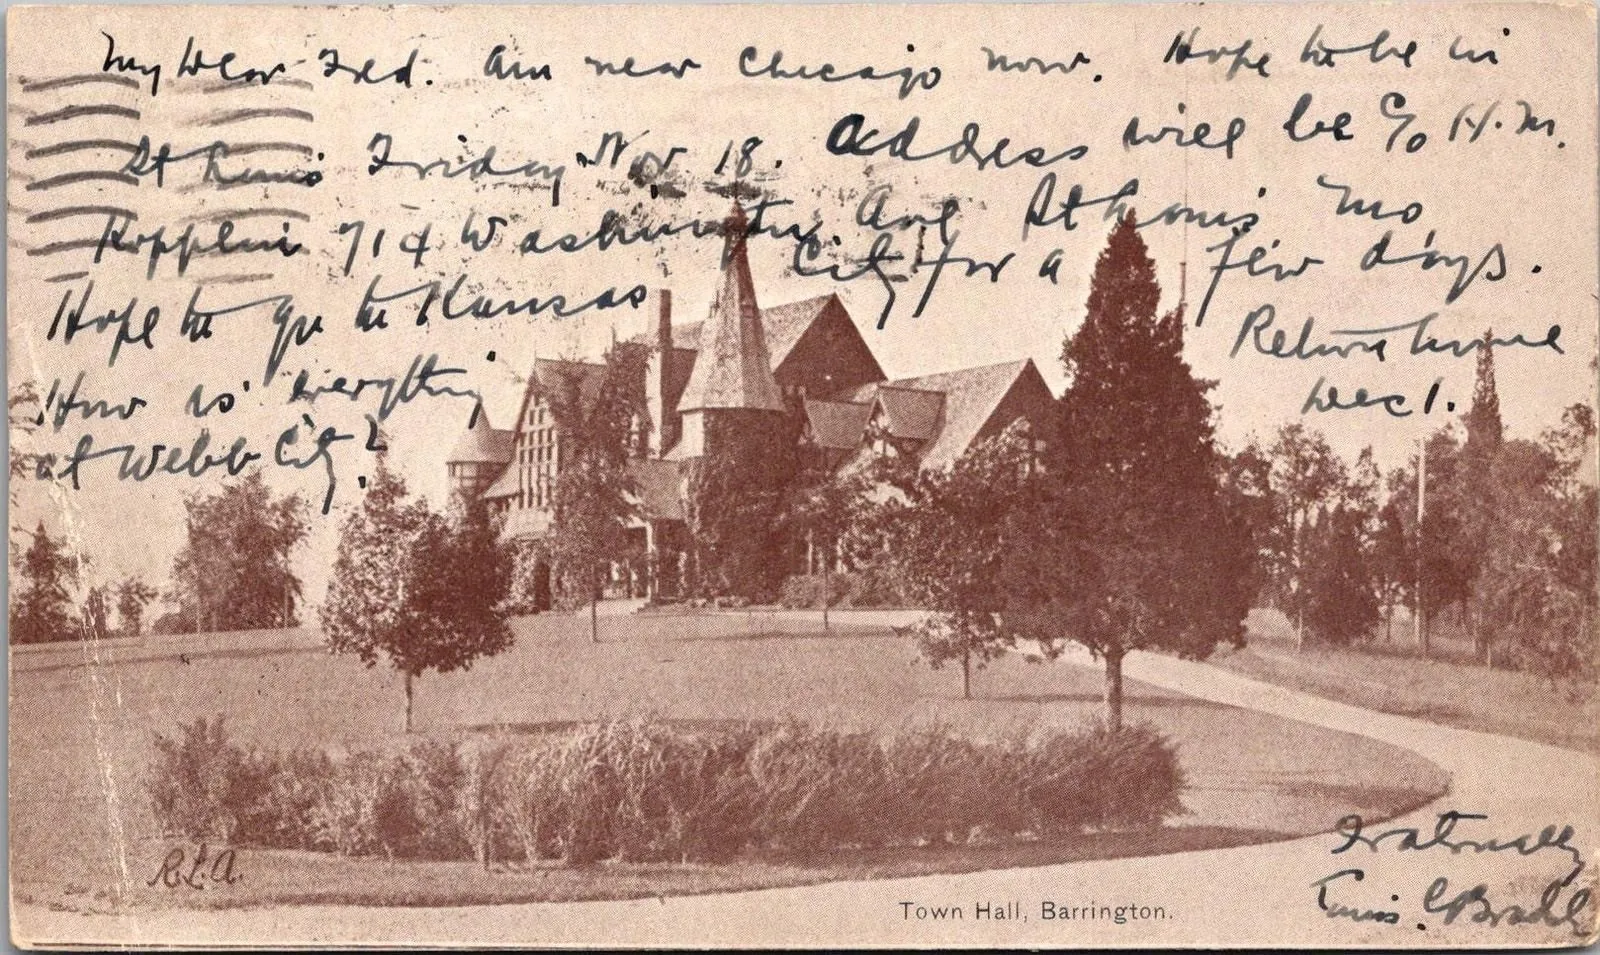 My Dear Fred. Am near Chicago now. Hope to be in
St Louis Friday Nov 18. Address will be c/o H. M.
Kopplin 714 Washington Ave St Louis Mo,
Hope to go to Kansas City for a few days.
Return home
Dec 1.
How is everything
at Webb City?
Fraternally
R.L.A.
Town Hall, Barrington.